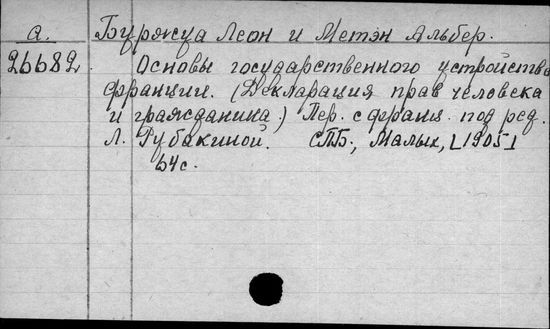 а. Буржуа Леон и Метэн Альбер.
26682. Основы государственного устройства
франции. (Декларация прав человека
и гражданина.) Пер. с франц. под ред.
Л. Рубакиной. СПБ., Малых, [1905]
64 с.